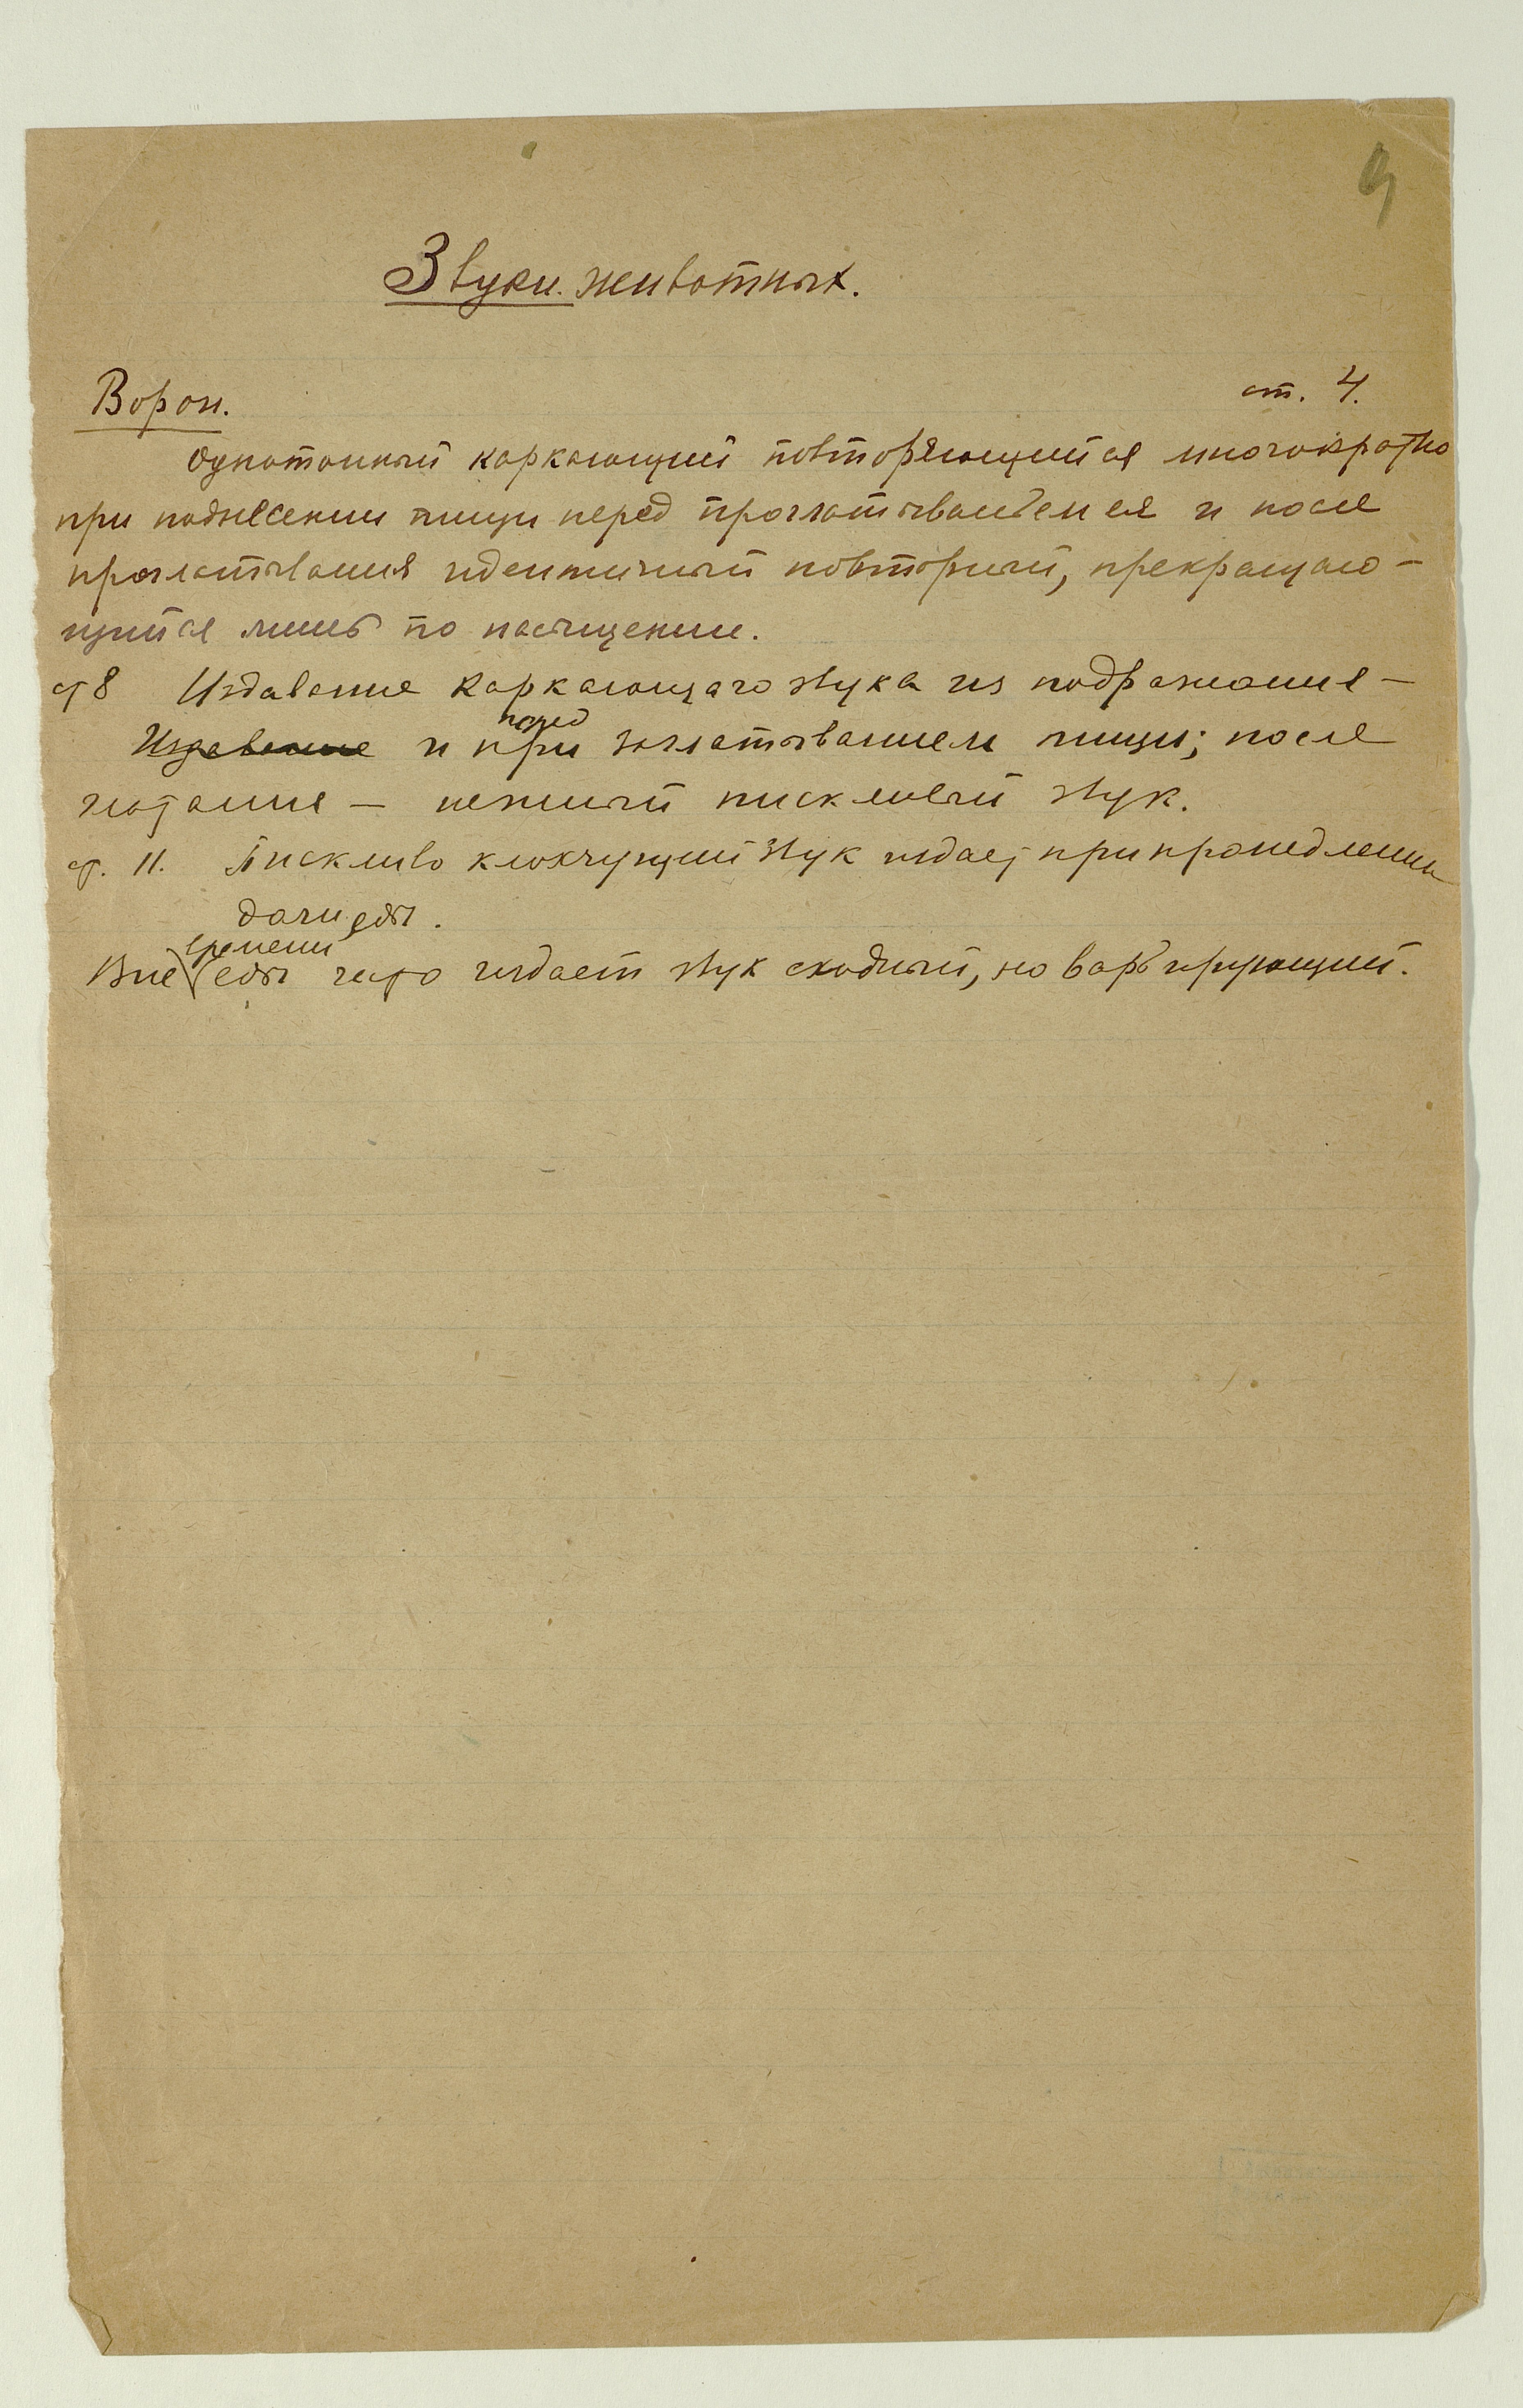 9
Звуки животных.
Ворон.
ст. 4.
Однотонный каркающий повторяющийся многократно
при поднесении пищи перед проглатываньем ея и после
проглатывания идентичный повторный, прекращаю-
щийся лишь по насыщении.
ст 8 Издавание каркающаго звука из подражания -
перед
Издавание и при заглатыванием пищи; после
глотания - нежный пискливый звук.
ст. 11. Пискливо клокчущий звук издает при промедлении
дачи еды.
времени
Вне еды часто издает звук сходный, но варьирующий.